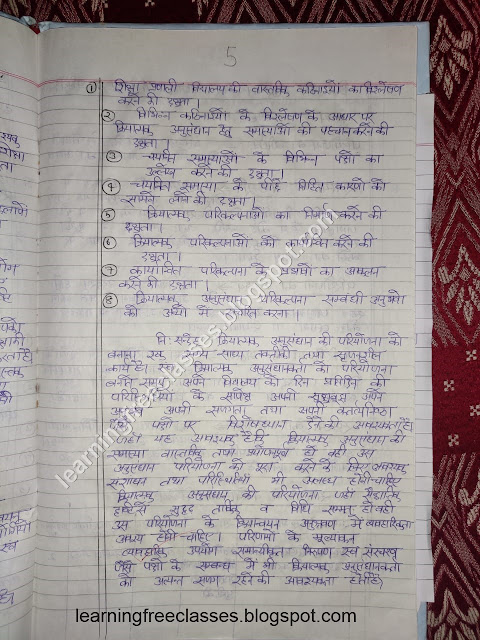 5
① शिक्षा प्रणाली विद्यालय की वास्तविक कठिनाइयों का विश्लेषण
करने की दक्षता ।
② विभिन्न कठिनाइयों के विश्लेषण के आधार पर
क्रियात्मक अनुसंधान हेतु समस्याओं की पहचान करने की
दक्षता ।
③ चयनित समस्याओं के विभिन्न पक्षों का
उल्लेख करने की दक्षता ।
④ चयनित समस्या के पीछे निहित कारणों को
सामने लाने की दक्षता ।
⑤ क्रियात्मक परिकल्पनाओं का निर्माण करने की
दक्षता ।
⑥ क्रियात्मक परिकल्पनाओं को कार्यान्वित करने की
दक्षता ।
⑦ कार्यान्वित परिकल्पना के प्रभावों का आकलन
करने की दक्षता ।
⑧ क्रियात्मक अनुसंधान परिकल्पना सम्बन्धी अनुभवों
को अन्यों में करना ।
नि: संदेह क्रियात्मक अनुसंधान की परियोजना को
बनाना एक समय साध्य तकनीकी तथा सृजनशील
कार्य है। क्रियात्मक अनुसंधानकर्ता को परियोजना
बनाते समय अपने विद्यालय की दिन प्रतिदिन की
परिस्थितियों के सापेक्ष अपनी सूझबूझ अपने
अनुभव अपनी सृजनता तथा अपनी कर्तव्यनिष्ठा
पक्षों पर विशेष ध्यान देने की आवश्यकता है।
जहाँ यह आवश्यक है कि क्रियात्मक अनुसंधान की
समस्या वास्तविक तथा प्रयोजनयुक्त हो वही उस
अनुसंधान परियोजना को पूरा करने के लिए आवश्यक
संसाधन तथा परिस्थितियाँ भी उपलब्ध होनी चाहिए
क्रियात्मक अनुसंधान की परियोजना जहाँ सैद्धांतिक
दृष्टि से सुदृढ़ तार्किक व विधि सम्मत हो वही
उस परियोजना के क्रियान्वयन अनुश्रवण में व्यवहारिकता
अवश्य होनी चाहिए। परिणामों के मूल्यांकन
व्यवहारिक उपयोग सामान्यीकरण विवरण एवं संरक्षण
जैसे पक्षों के सम्बन्ध में भी क्रियात्मक अनुसंधानकर्ता
को अत्यन्त सजग रहने की आवश्यकता होती है।
learningfreeclasses.blogspot.com
learningfreeclasses.blogspot.com